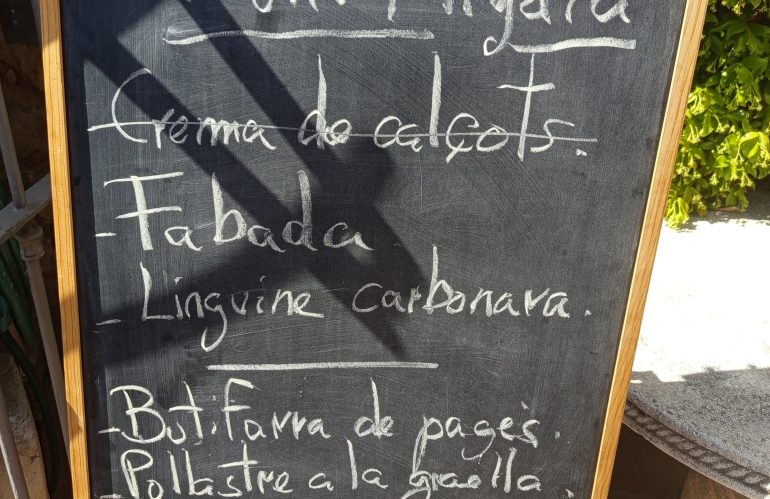 Crema de calçots.
- Fabada
- Linguine carbonara.
- Butifarra de pagès.
- Pollastre a la graella.